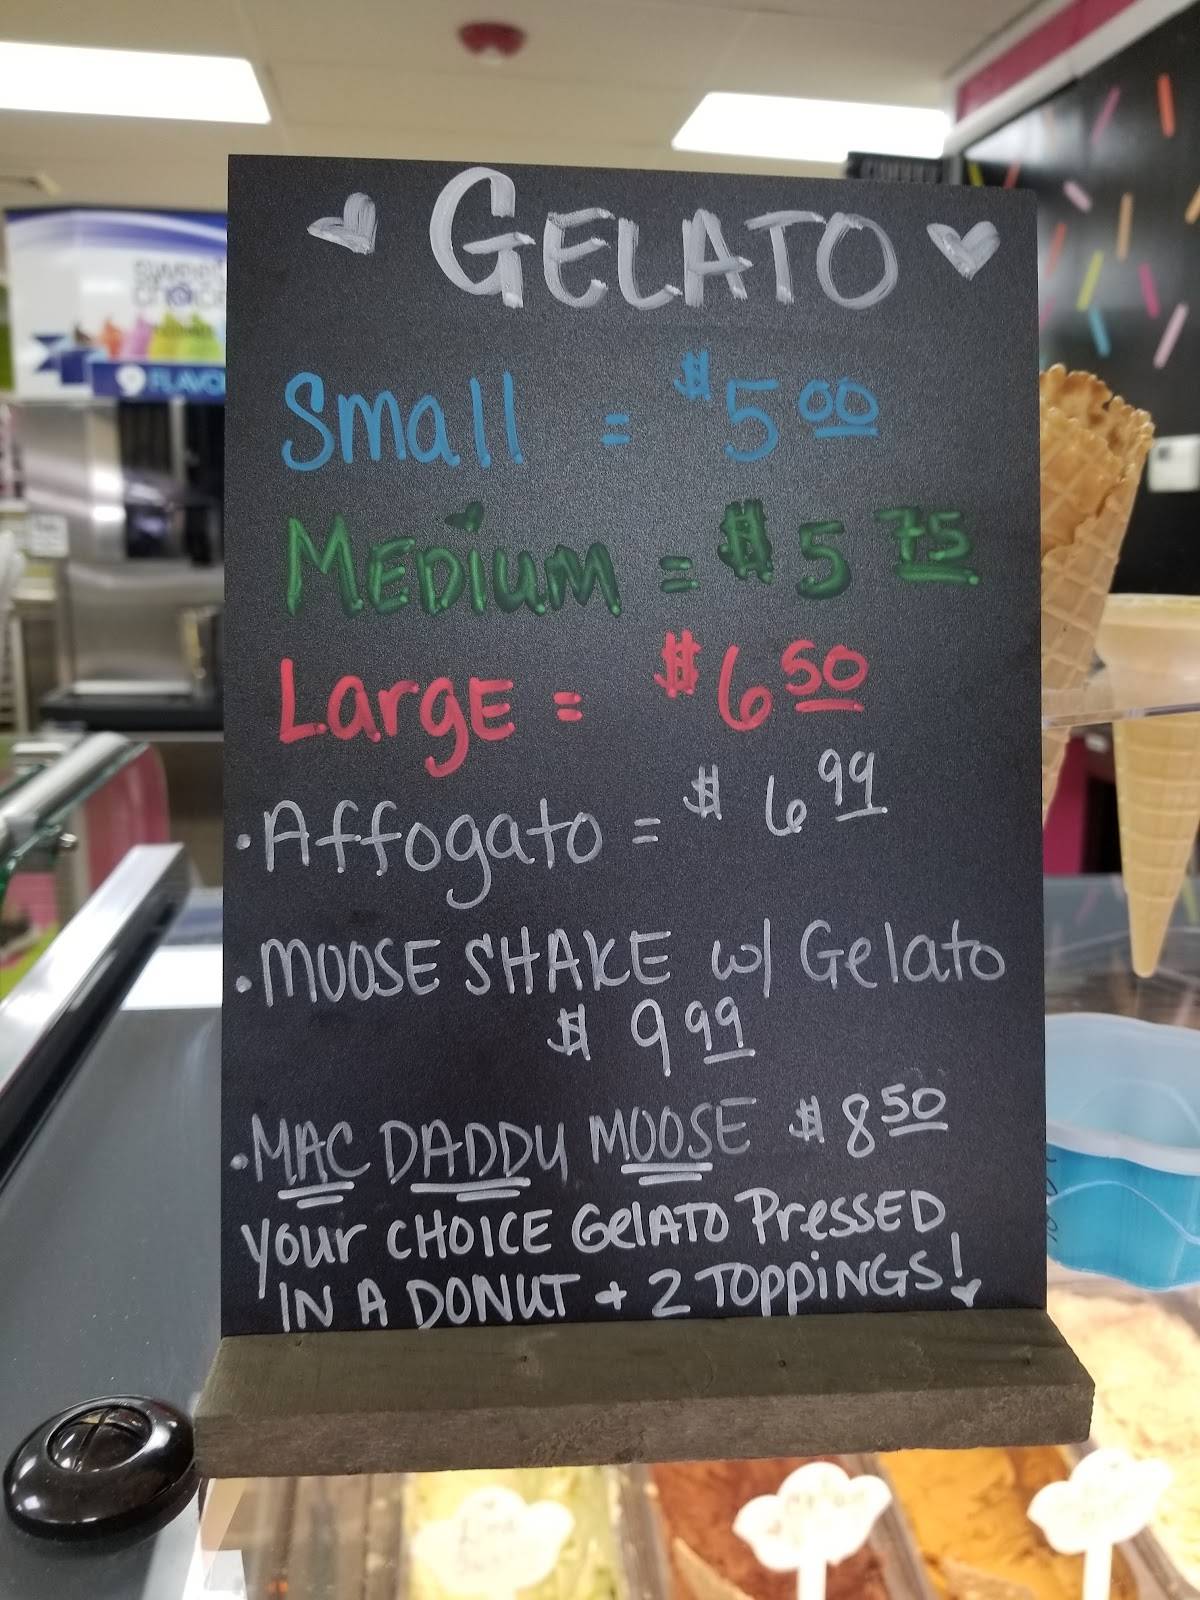 GELATO
Small = $5 00
MEDIUM = $5 75
LargE = $6 50
• Affogato = $ 6 99
• MOOSE SHAKE w/ Gelato
$ 9 99
• MAC DADDY MOOSE $8 50
Your CHOICE GelATO PressED
IN A DONUT + 2 TOPPiNGS!
sweet
choice
9 FLAVO